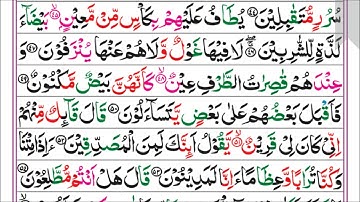 سُرُرٍ مُّتَقٰبِلِيْنَ ﴿۴۴﴾ يُطَافُ عَلَيْهِمْ بِكَاْسٍ مِّنْ مَّعِيْنٍۭ ﴿۴۵﴾ بَيْضَآءَ
لَذَّةٍ لِّلشّٰرِبِيْنَ ﴿۴۶﴾ لَا فِيْهَا غَوْلٌ وَّلَا هُمْ عَنْهَا يُنْزَفُوْنَ ﴿۴۷﴾ وَ
عِنْدَهُمْ قٰصِرٰتُ الطَّرْفِ عِيْنٌ ﴿۴۸﴾ كَاَنَّهُنَّ بَيْضٌ مَّكْنُوْنٌ ﴿۴۹﴾
فَاَقْبَلَ بَعْضُهُمْ عَلٰى بَعْضٍ يَّتَسَآءَلُوْنَ ﴿۵۰﴾ قَالَ قَآئِلٌ مِّنْهُمْ
اِنِّىْ كَانَ لِىْ قَرِيْنٌ ﴿۵۱﴾ يَّقُوْلُ اَئِنَّكَ لَمِنَ الْمُصَدِّقِيْنَ ﴿۵۲﴾ ءَاِذَا مِتْنَا
وَكُنَّا تُرَابًا وَّعِظَامًا ءَاِنَّا لَمَدِيْنُوْنَ ﴿۵۳﴾ قَالَ هَلْ اَنْتُمْ مُّطَّلِعُوْنَ ﴿۵۴﴾